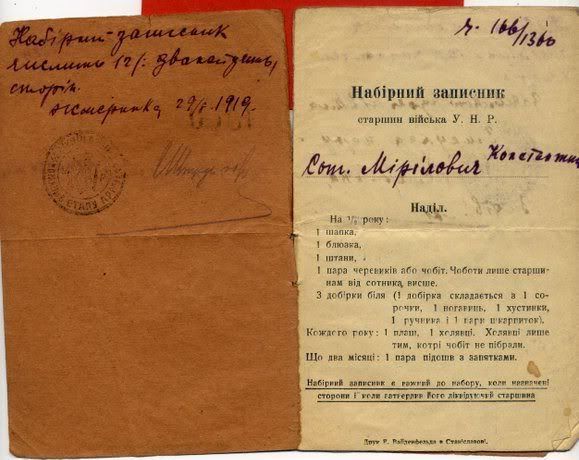 Набірний записник
числить 12/: дванайцять/
сторін.
Жмеринка 29/ 1919.
ч. 166/1360
Набірний записник
старшин війська У. Н. Р.
Сот. Мірілович Константин
Наділ.
На ½ року:
1 шапка,
1 блюзка,
1 штани,
1 пара черевиків або чобіт. Чоботи лише старши-
нам від сотника, висше.
3 добірки біля (1 добірка складається з 1 со-
рочки, 1 ногавиць, 1 хустинки,
1 ручника і 1 пари шкарпиток).
Кожного року: 1 плащ, 1 холявці. Холявці лише
тим, котрі чобіт не пібрали.
Що два місяці: 1 пара підошв з запятками.
Набірний записник є важний до набору, коли назначені
сторони і коли затвердив його ліквіруючий старшина
Друк Е. Вайденфельда в Станіславові.